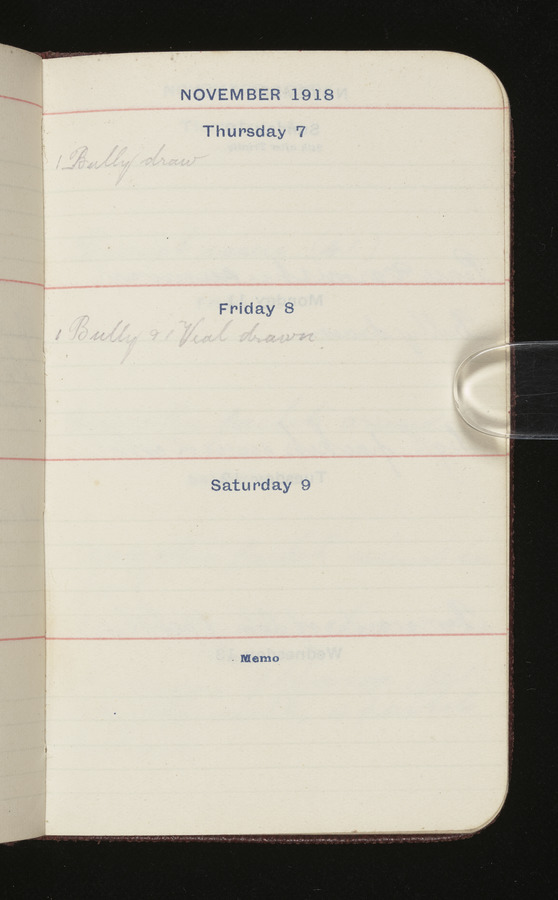 NOVEMBER 1918
Thursday 7
1 Bully draw
Friday 8
1 Bully & 1 Veal drawn
Saturday 9
Memo